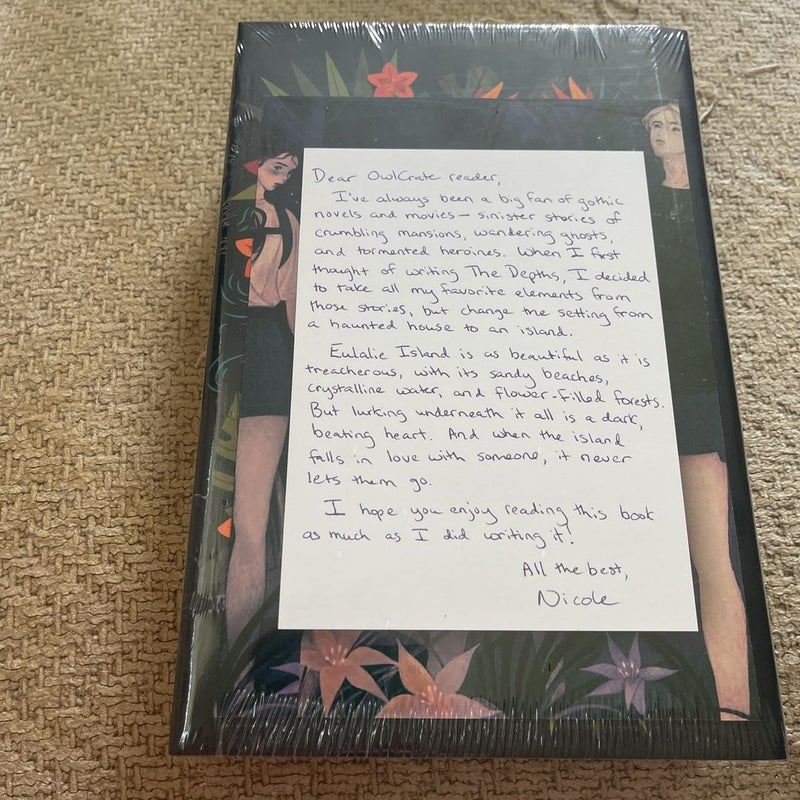 Dear OwlCrate reader,
I've always been a big fan of gothic
novels and movies — sinister stories of
crumbling mansions, wandering ghosts,
and tormented heroines. When I first
thought of writing The Depths, I decided
to take all my favorite elements from
those stories, but change the setting from
a haunted house to an island.
Eulalie Island is as beautiful as it is
treacherous, with its sandy beaches,
crystalline water, and flower-filled forests.
But lurking underneath it all is a dark,
beating heart. And when the island
falls in love with someone, it never
lets them go.
I hope you enjoy reading this book
as much as I did writing it!
All the best,
Nicole